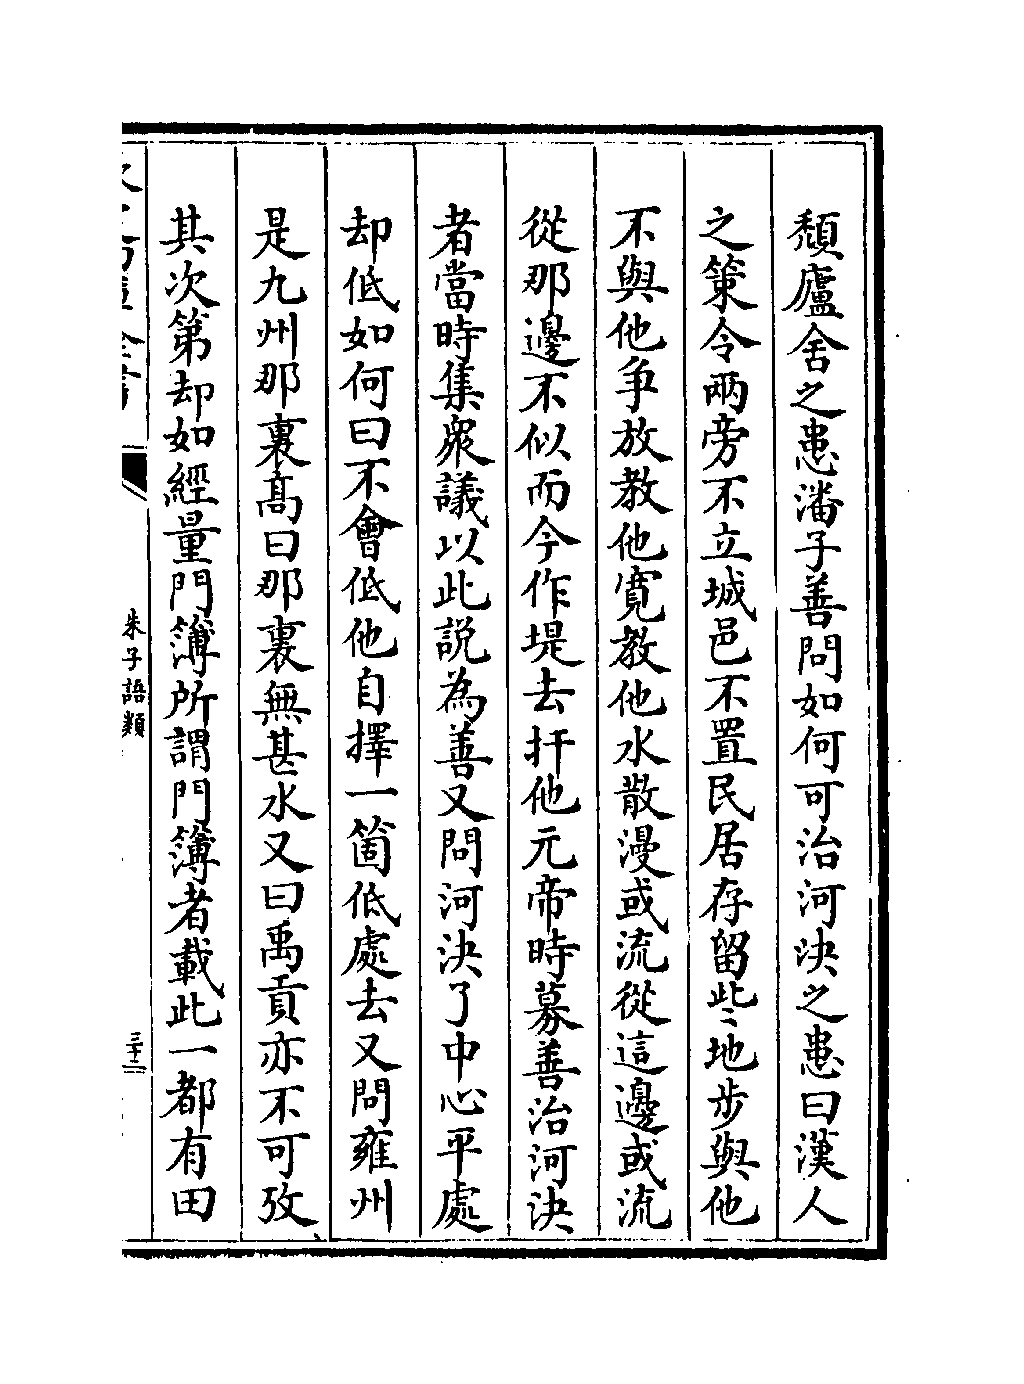 頽廬舍之患潘子善問如何可治河決之患曰漢人
之策令兩旁不立城邑不置民居存留些々地步與他
不與他争放教他寛教他水散漫或流從這邊或流
從那邊不似而今作堤去扞他元帝時募善治河決
者當時集衆議以此説為善又問河決了中心平處
却低如何曰不會低他自擇一箇低處去又問雍州
是九州那裏髙曰那裏無甚水又曰禹貢亦不可攷
其次第却如經量門簿所謂門簿者載此一都有田
朱子語類
三十二